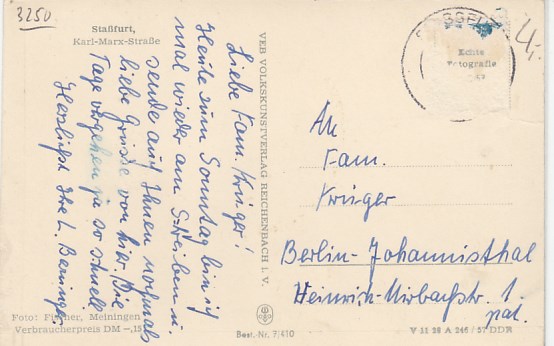 3250
Staßfurt,
Karl-Marx-Straße
Liebe Fam. Krüger!
Heute zum Sonntag bin ich
mal wieder am Schreiben u.
sende auch Ihnen nochmals
liebe Grüsse von hier. Die
Tage vergehen ja so schnell
Herzlichst Ihre L.
Foto: Fischer, Meiningen
Verbraucherpreis DM -,15
VEB VOLKSKUNSTVERLAG REICHENBACH I. V.
Best.-Nr. 7/410
Echte
Fotografie
4,-
An
Fam.
Krüger
Berlin-Johannisthal
Heinrich-Mirbachstr. 1
V 11 28 A 246/57 DDR